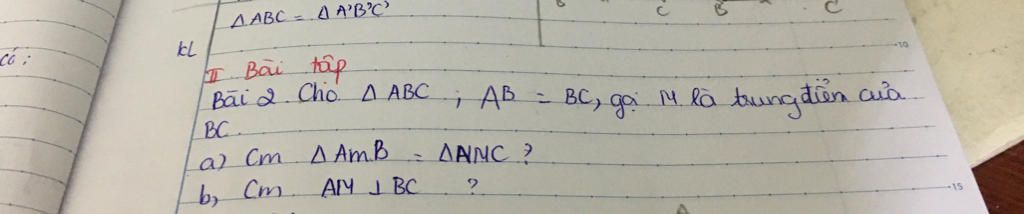 Δ ABC = Δ A'B'C'
C B C
kL
có :
10
II Bài tập
Bài 2. Cho Δ ABC ; AB = BC, gọi M là trung điểm của
BC.
a) Cm Δ AmB = ΔAMC ?
b, Cm AM ⊥ BC ?
15
A